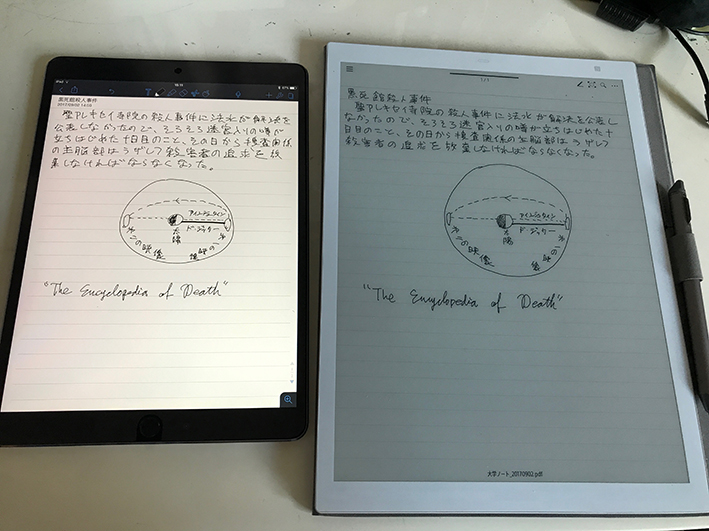 黒死館殺人事件
2017/09/02 14:58
聖アレキセイ寺院の殺人事件に法水が解決を
公表しなかったので、そろそろ迷宮入りの噂が
立ちはじめた十日目のこと、その日から捜査関係
の主脳部は、ラザレフ殺害者の追求を放
棄しなければならなくなった。
アインシュタイン
ド・ジッター
太陽
太陽の映像
"The Encyclopedia of Death"
1/1
黒死館殺人事件
聖アレキセイ寺院の殺人事件に法水が解決を公表し
なかったので、そろそろ迷宮入りの噂が立ちはじめた十
日目のこと、その日から捜査関係の主脳部は、ラザレフ
殺害者の追求を放棄しなければならなくなった。
アインシュタイン
ド・ジッター
太陽
の映像
"The Encyclopedia of Death"
大学ノート_20170902.pdf